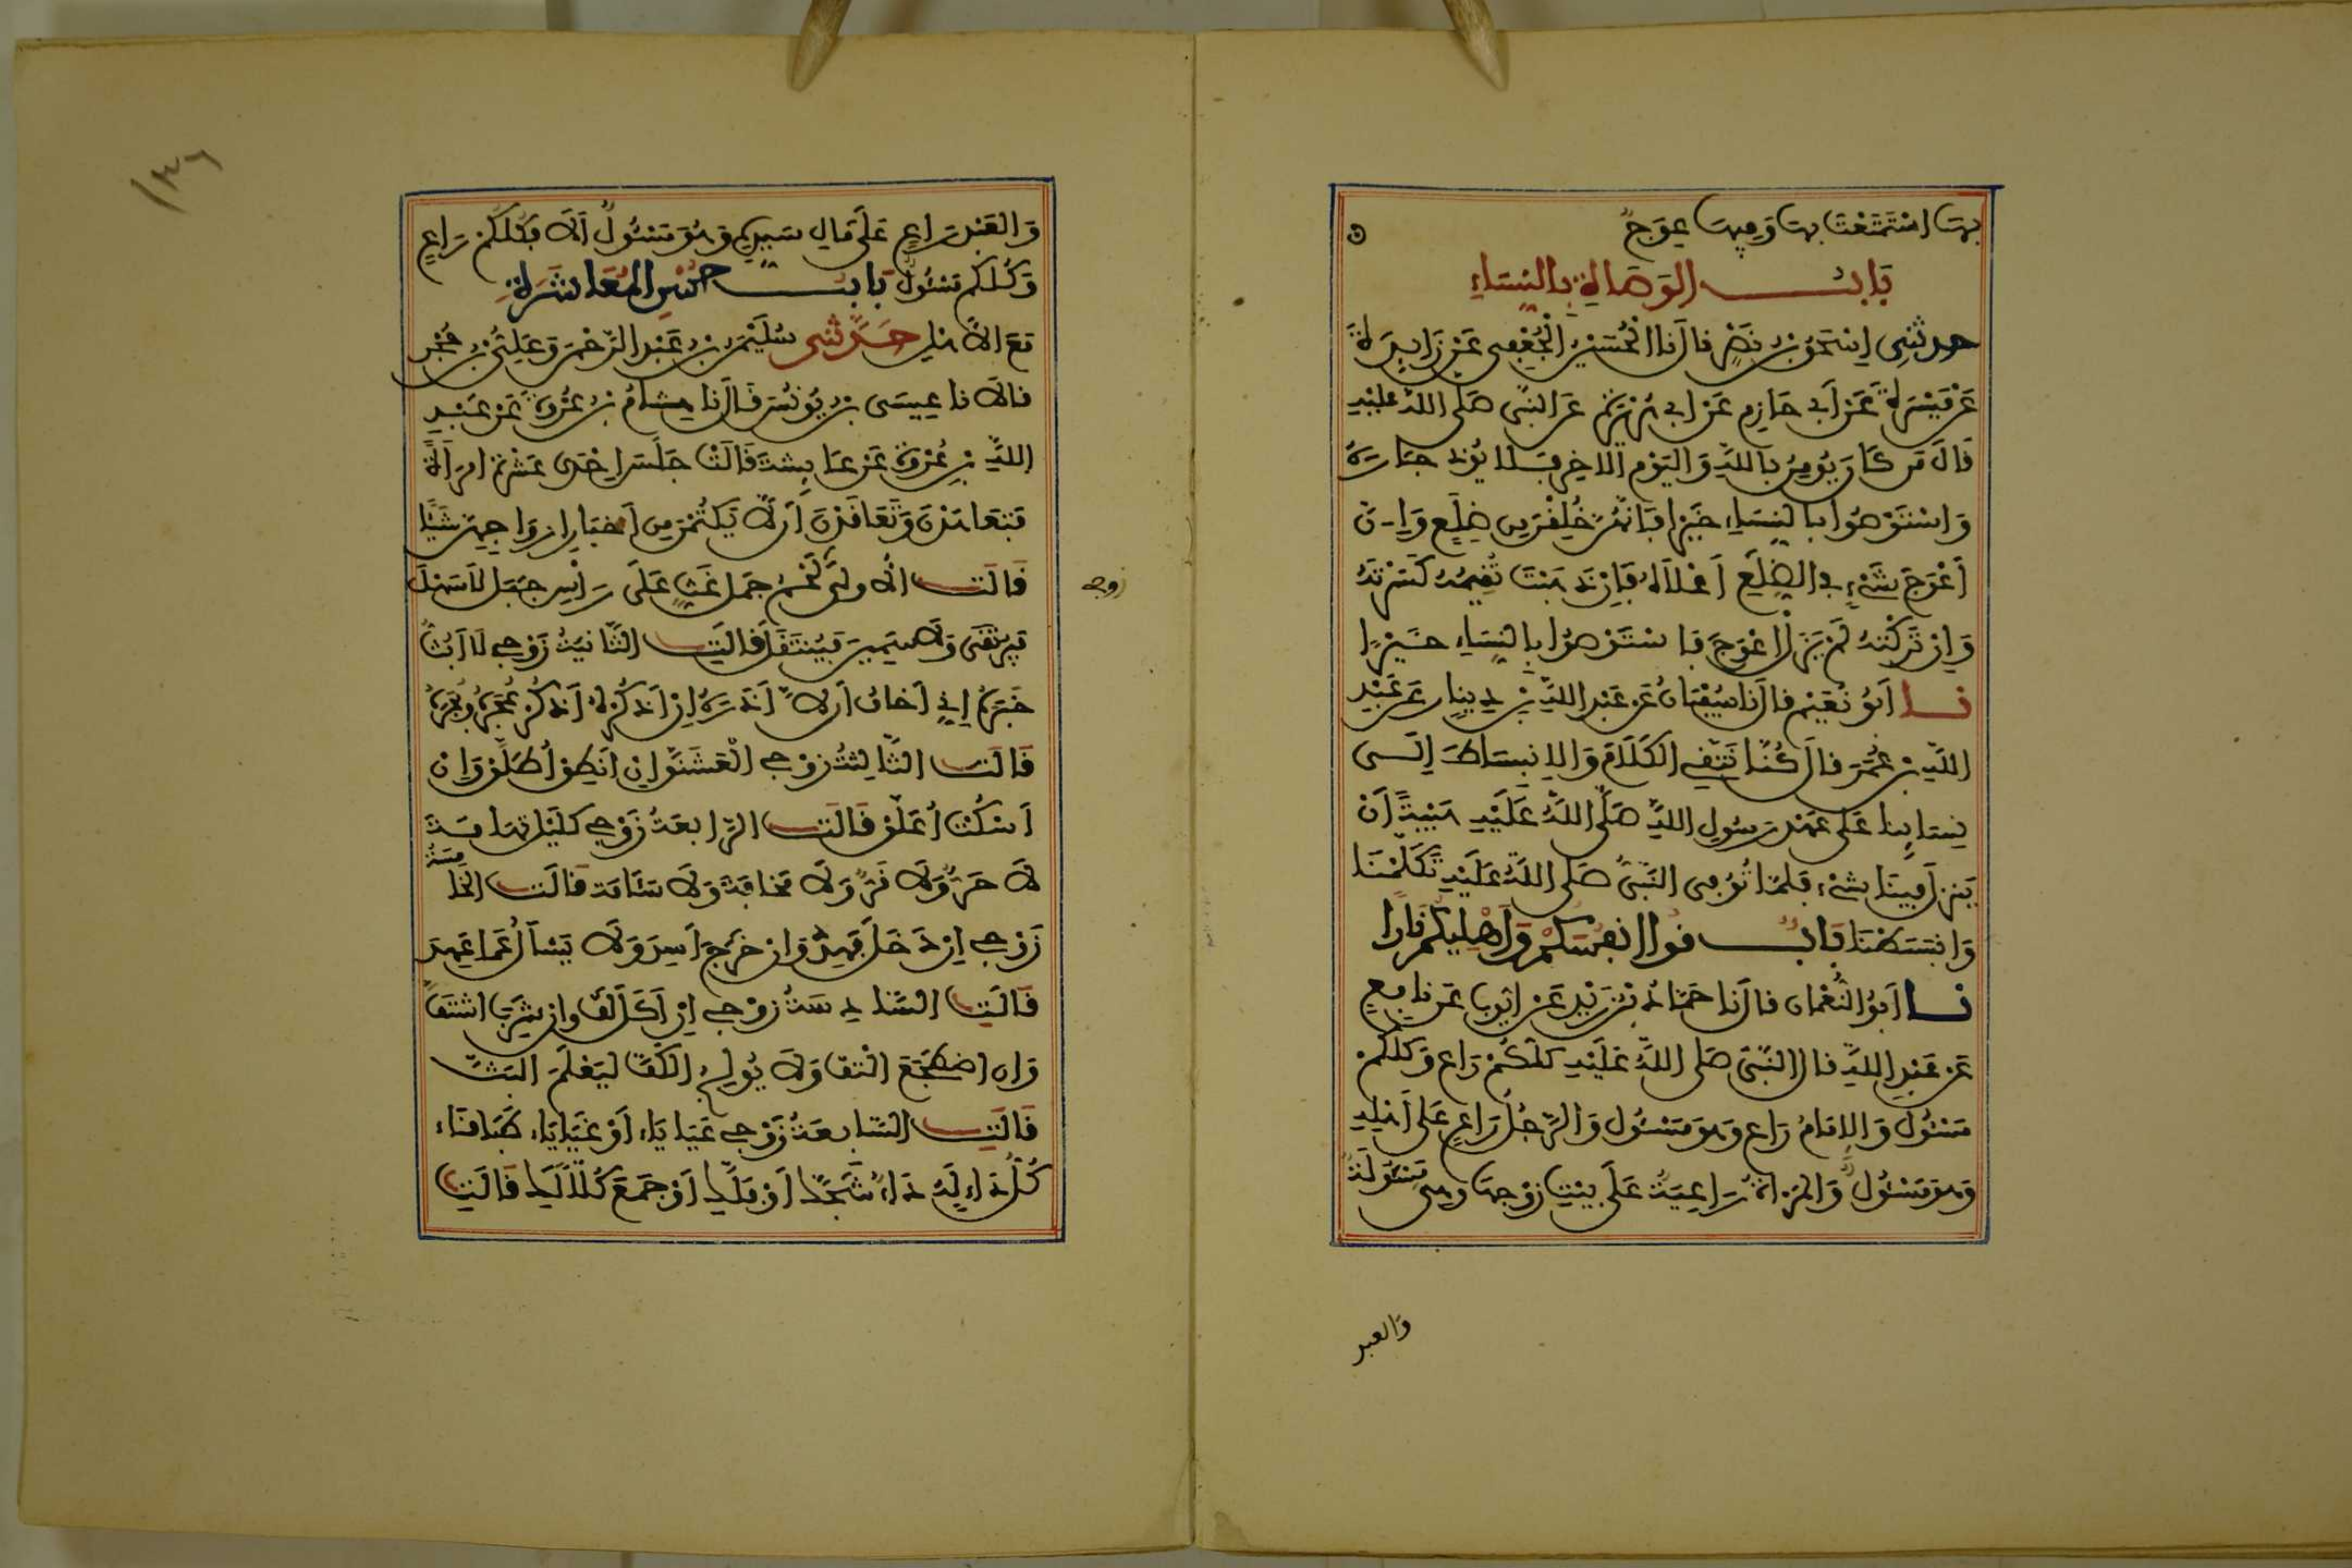 بِهَا اسْتَمْتَعْتَ بِهَا وَفِيهَا عِوَجٌ
بَابُ الوَصَاةِ بِالنِّسَاءِ
حدثنِي إِسْحَقُ بْنُ نَصْرٍ قال نَا الْحُسَيْنُ الْجُعْفِي عَنْ زَايِدَةَ
عَنْ مَيْسَرَةَ عَنْ أَبِي حَازِمٍ عَنْ أبي هُرَيْرَةَ عَنِ النَّبِي صَلى اللهُ عليْهِ
قَالَ مَن كَانَ يُومِنُ بِاللهِ وَاليَوْمِ الاخِرِ فَلَا يُوذِ جَارَهُ
وَاسْتَوْصُوا بالنِّسَاءِ خَيْرًا فَإِنَّهُنَّ خُلِقْنَ مِن ضِلَعٍ وَإِنَّ
أَعْوَجَ شَيْءٍ في الضِّلَعِ أَعْلَاهُ فَإِنْ ذَهَبْتَ تُقِيمُهُ كَسَرْتَهُ
وَإِنْ تَرَكْتَهُ لَمْ يَزَلْ أَعْوَجَ فَاسْتَوْصُوا بِالنِّسَاءِ خَيْرًا
نا أَبُو نُعَيْمٍ قال نَا سُفْيَانُ عَن عَبْدِ اللهِ بْنِ دِينارٍ عَن عَبْدِ
اللهِ بْنِ عُمَرَ قال كُنَّا نَتَّقِي الكَلَامَ وَالِانْبِسَاطَ إِلَى
نِسَائِنا عَلَى عَهْدِ رَسُولِ اللهِ صَلَّى اللهُ عَلَيْهِ هَيْبَةَ أَنْ
يَنزِلَ فِينَا شَيْءٌ فَلَمَّا تُوُفِّي النَّبِيُّ صَلى اللهُ عَلَيْهِ تَكَلَّمْنَا
وَانْبَسَطْنَا بَابُ قُوا أَنفُسَكُمْ وَأَهْلِيكُمْ نَارًا
نا أَبُو النُّعْمَانِ قال نَا حَمَّادُ بْنُ زَيْدٍ عَنْ أيوبَ عَن نَافِعٍ
عَن عَبْدِ اللهِ قال النَّبِيُّ صَلى اللهُ عَلَيْهِ كلكُمْ رَاعٍ وَكلكُمْ
مَسْئُولٌ وَالإمَامُ رَاعٍ وَهوَ مَسْئُولٌ وَالرَّجُلُ رَاعٍ عَلى أَهْلِهِ
وَهوَ مَسْئُولٌ وَالمَرْأَةُ رَاعِيَةٌ عَلَى بَيْتِ زَوْجِهَا وهي مَسْئُولَةٌ
والعبد
وَالعَبْدُ رَاعٍ عَلَى مَالِ سَيِّدِهِ وَهُوَ مَسْئُولٌ أَلَا فَكُلُّكُمْ رَاعٍ
وَكُلُّكُم مَسْئُولٌ بَابُ حُسْنِ المُعَاشَرَةِ
مَعَ الأَهْلِ حَدَّثَنِي سُلَيْمَنُ بْنُ عَبْدِ الرَّحْمَنِ وَعَلِيُّ بْنُ حُجْرٍ
قالَا نا عِيسَى بْنُ يُونُسَ قَالَ نَا هِشَامُ بْنُ عُرْوَةَ عَنْ عَبْدِ
اللهِ بْنِ عُرْوَةَ عَنْ عَائِشَةَ قَالَتْ جَلَسَ إِحْدَى عَشْرَةَ امْرَأَةً
فَتَعَاهَدْنَ وَتَعَاقَدْنَ أَن لَّا يَكْتُمْنَ مِن أَخْبَارِ أزْوَاجِهِنَّ شَيْئًا
قَالَتِ الأُولَى لَحْمُ جَمَلٍ غَثٍّ عَلَى رَأْسِ جَبَلٍ لَا سَهْلٍ
زوجي
فَيُرْتَقَى وَلَا سَمِينٍ فَيُنْتَقَلَ قَالَتِ الثَّانِيَةُ زَوْجِي لَا أَبُثُّ
خَبَرَهُ إِنِّي أَخَافُ أَن لَّا أَذَرَهُ إِنْ أَذْكُرْهُ أَذْكُرْ عُجَرَهُ وَبُجَرَهُ
قَالَتِ الثَّالِثَةُ زَوْجِي الْعَشَنَّقُ إِنْ أَنْطِقْ أُطَلَّقْ وَإِنْ
أَسْكُتْ أُعَلَّقْ قَالَتِ الرَّابِعَةُ زَوْجِي كَلَيْلِ تِهَامَةَ
لَا حَرٌّ وَلَا قَرٌّ وَلَا مَخَافَةَ وَلَا سَئَامَةَ قَالَتِ الخَامِسَةُ
زَوْجِي إِنْ دَخَلَ فَهِدَ وَإن خَرَجَ أَسِدَ وَلَا يَسْأَلُ عَمَّا عَهِدَ
قَالَتِ السَّادِسَةُ زَوْجِي إِنْ أَكَلَ لَفَّ وَإِن شَرِبَ اشْتَفَّ
وَإن اضْطَجَعَ الْتَفَّ وَلَا يُولِجُ الكَفَّ لِيَعْلَمَ البَثَّ
قَالَتِ السَّابِعَةُ زَوْجِي غَيَايَاءُ أَوْ عَيَايَاءُ طَبَاقَاءُ
كُلُّ دَاءٍ لَهُ دَاءٌ شَجَّكِ أَوْ فَلَّكِ أَوْ جَمَعَ كُلًّا لَكِ قَالَتِ